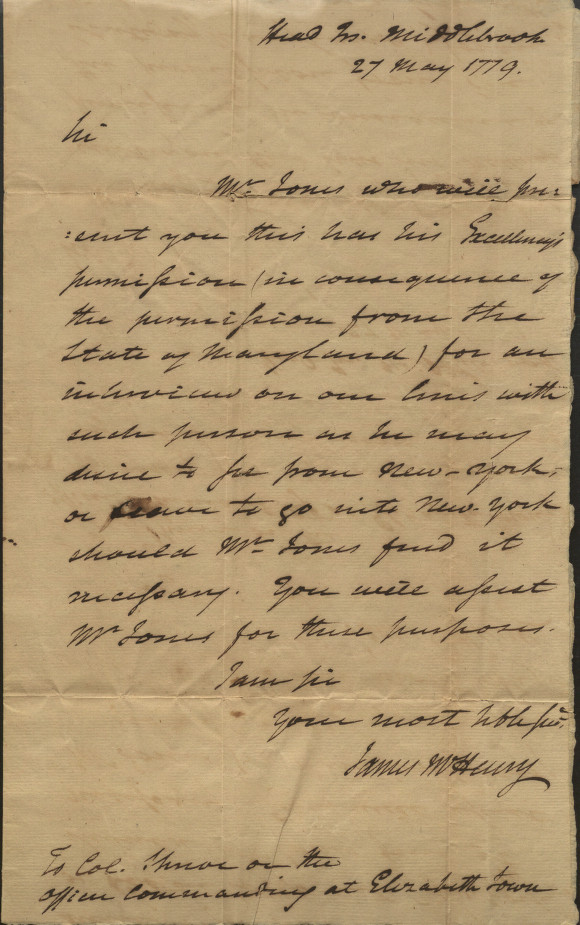 Head Qrs. Middlebrook
27 May 1779.
Sir
Mr. Jones who will pre=
=sent you this has his Excellency's
permission (in consequence of
the permission from the
State of Maryland) for an
interview on our lines with
such person as he may
desire to see from New-York,
or leave to go into New-York
should Mr. Jones find it
necessary. You will assist
Mr Jones for these purposes.
I am sir
Your most hble Ser.
James McHenry
To Col. Shreve or the
officer commanding at Elizabeth Town